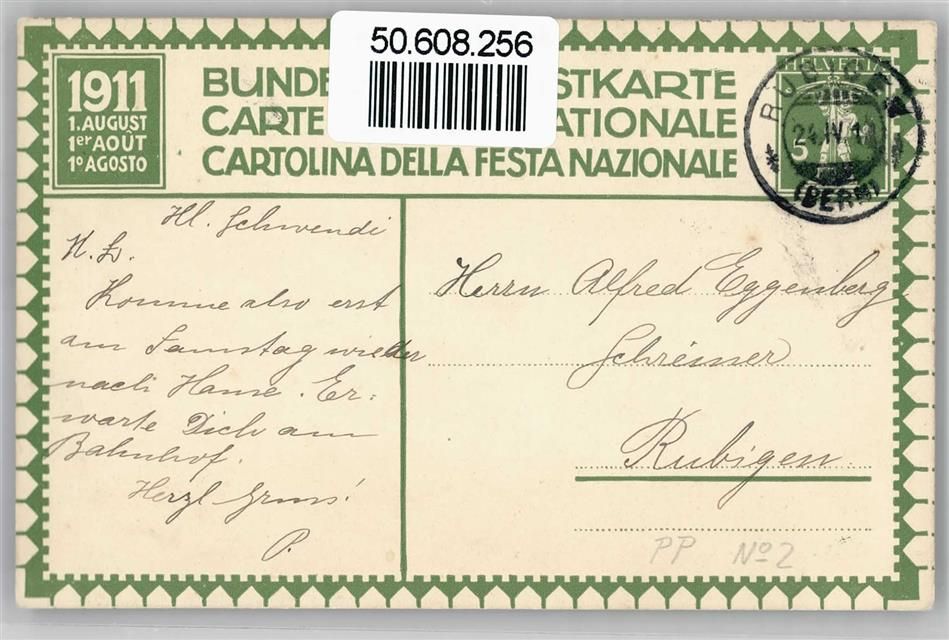 50.608.256
1911
1. AUGUST
1er AOUT
1º AGOSTO
BUNDE STKARTE
CARTE ATIONALE
CARTOLINA DELLA FESTA NAZIONALE
HELVETIA
5
24.IV.12
(BERN)
Hl. Schwendi
N. L.
Komme also erst
am Samstag wieder
nach Hause. Er:
warte Dich am
Bahnhof.
Herzl Gruss!
P.
Herrn Alfred Eggenberg
Schreiner
Rubigen
PP Nº 2